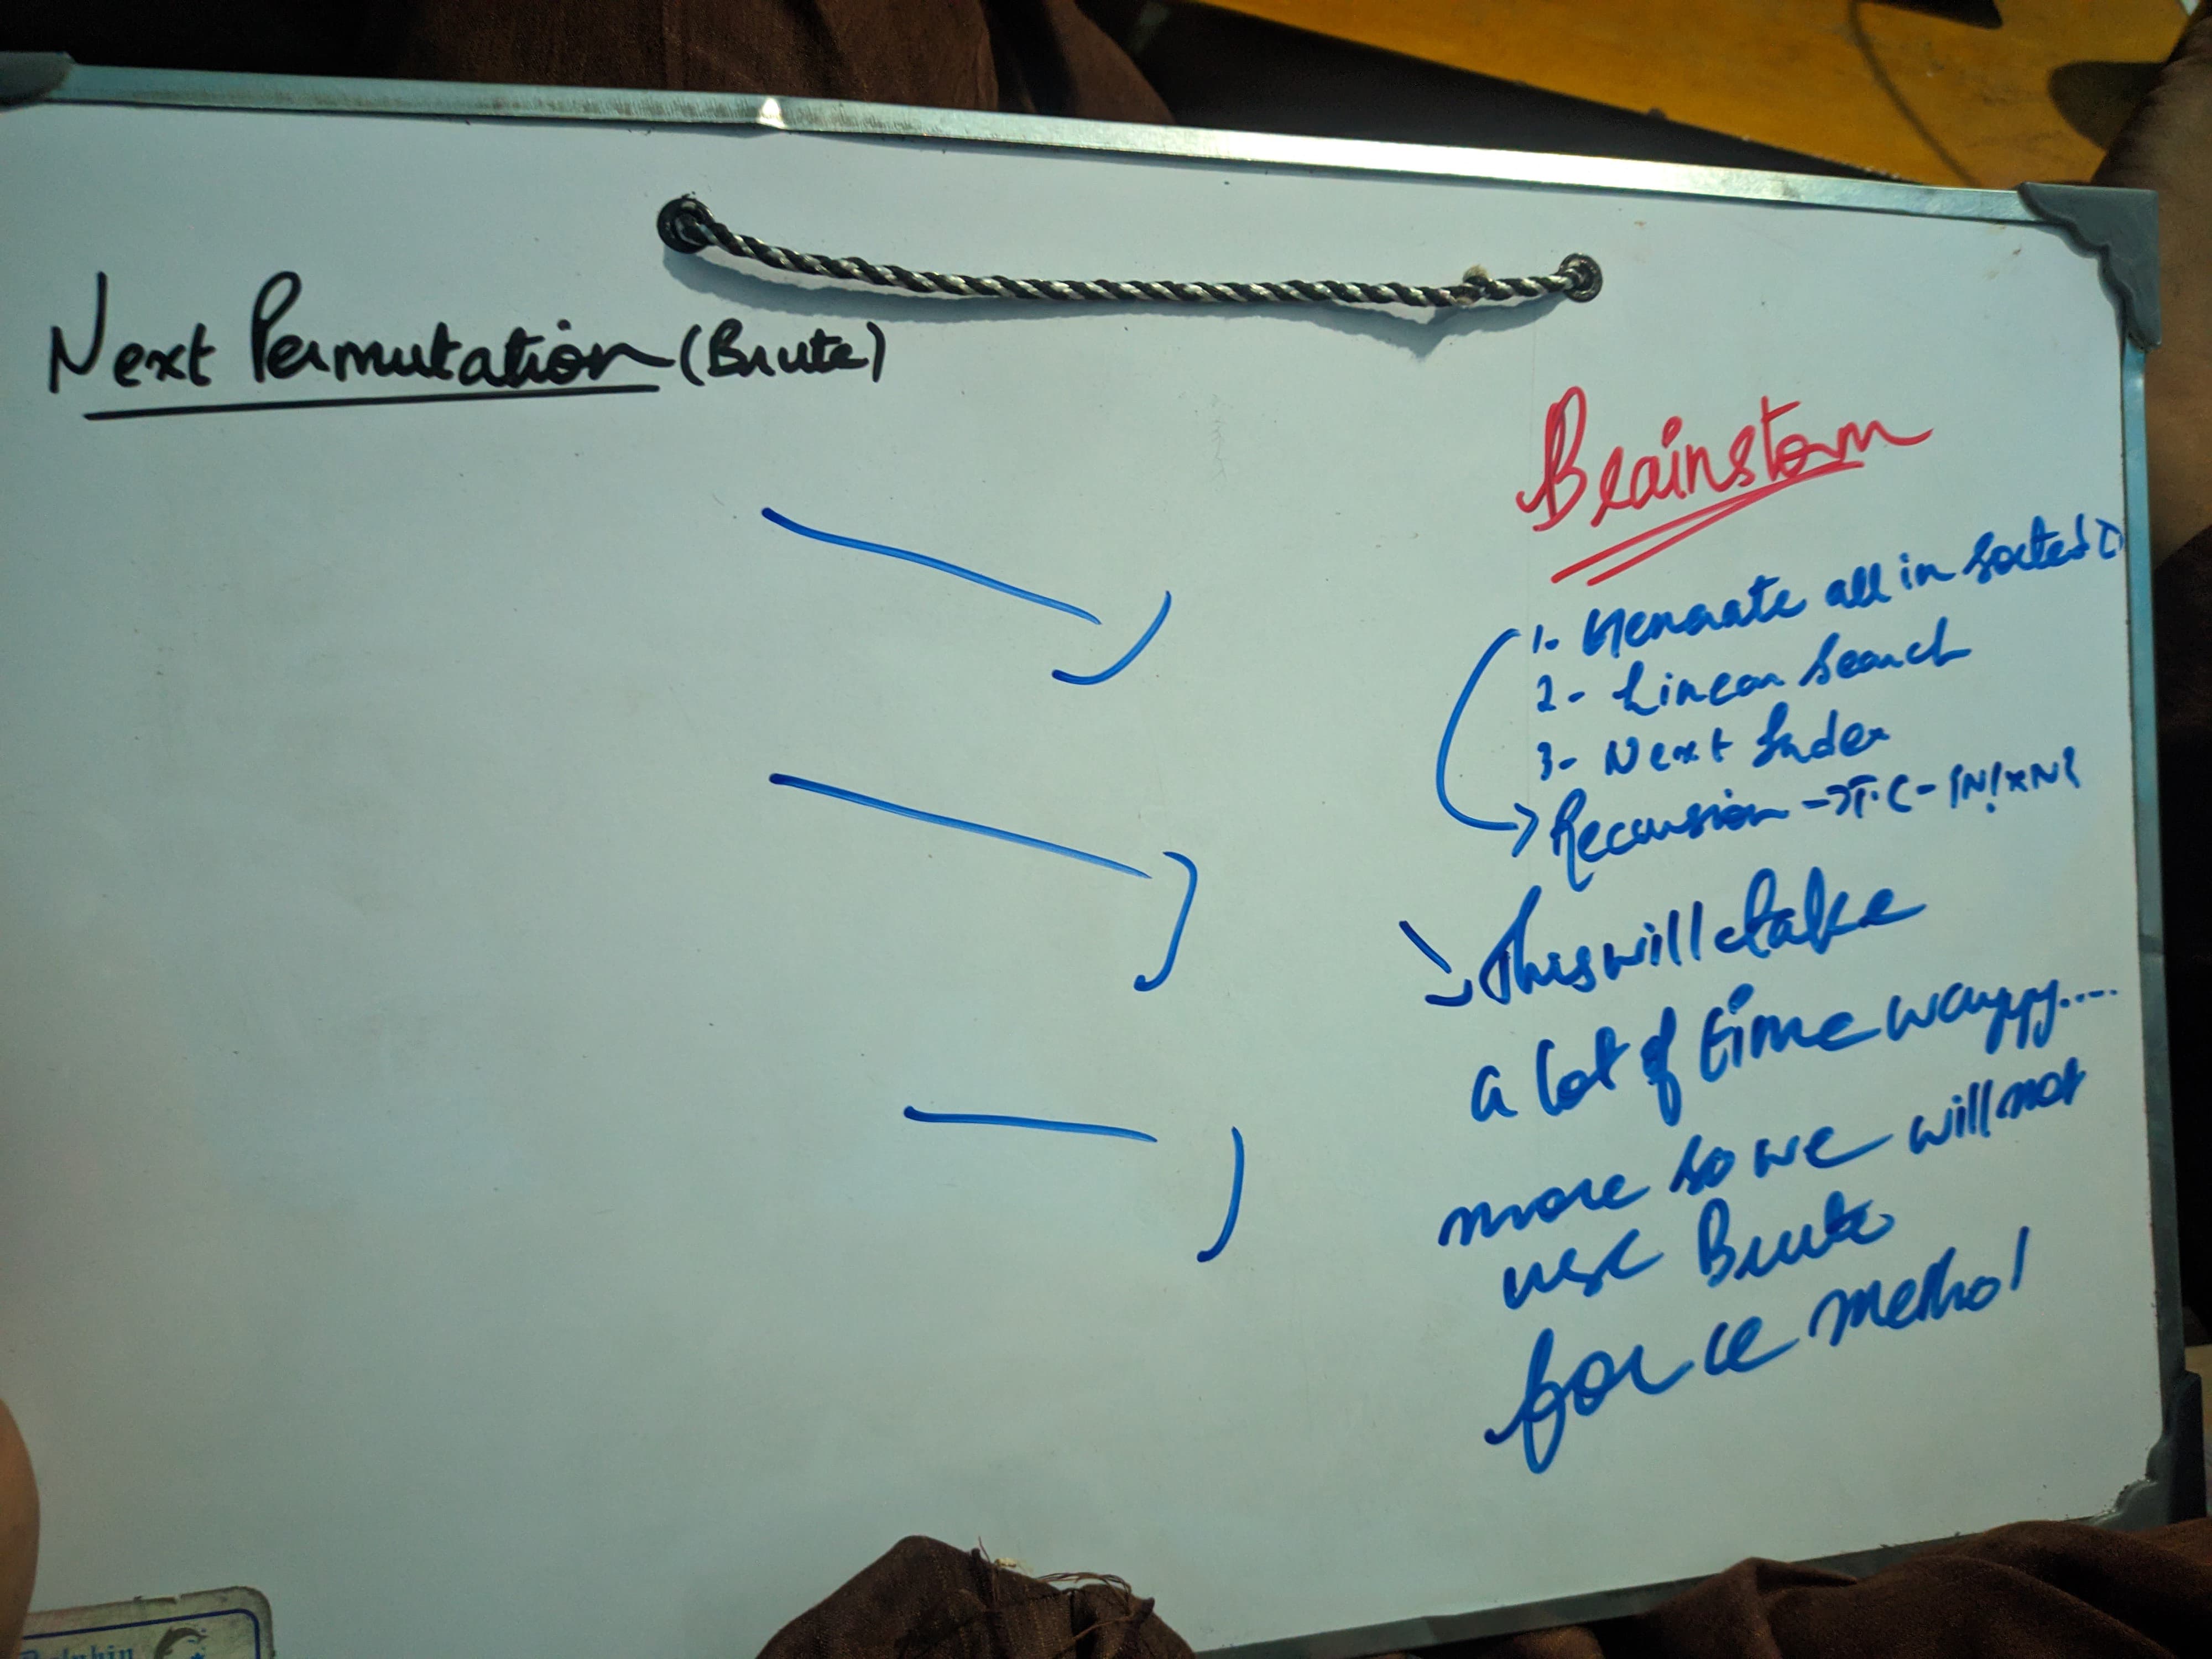 Next Permutation (Brute)
Brainstorm
1. Generate all in sorted
2- Linear Search
3- Next Index
Recursion -> T.C - N! x N
This will take
a lot of time wayyy.....
more so we will not
use Brute
force method
Dolphin